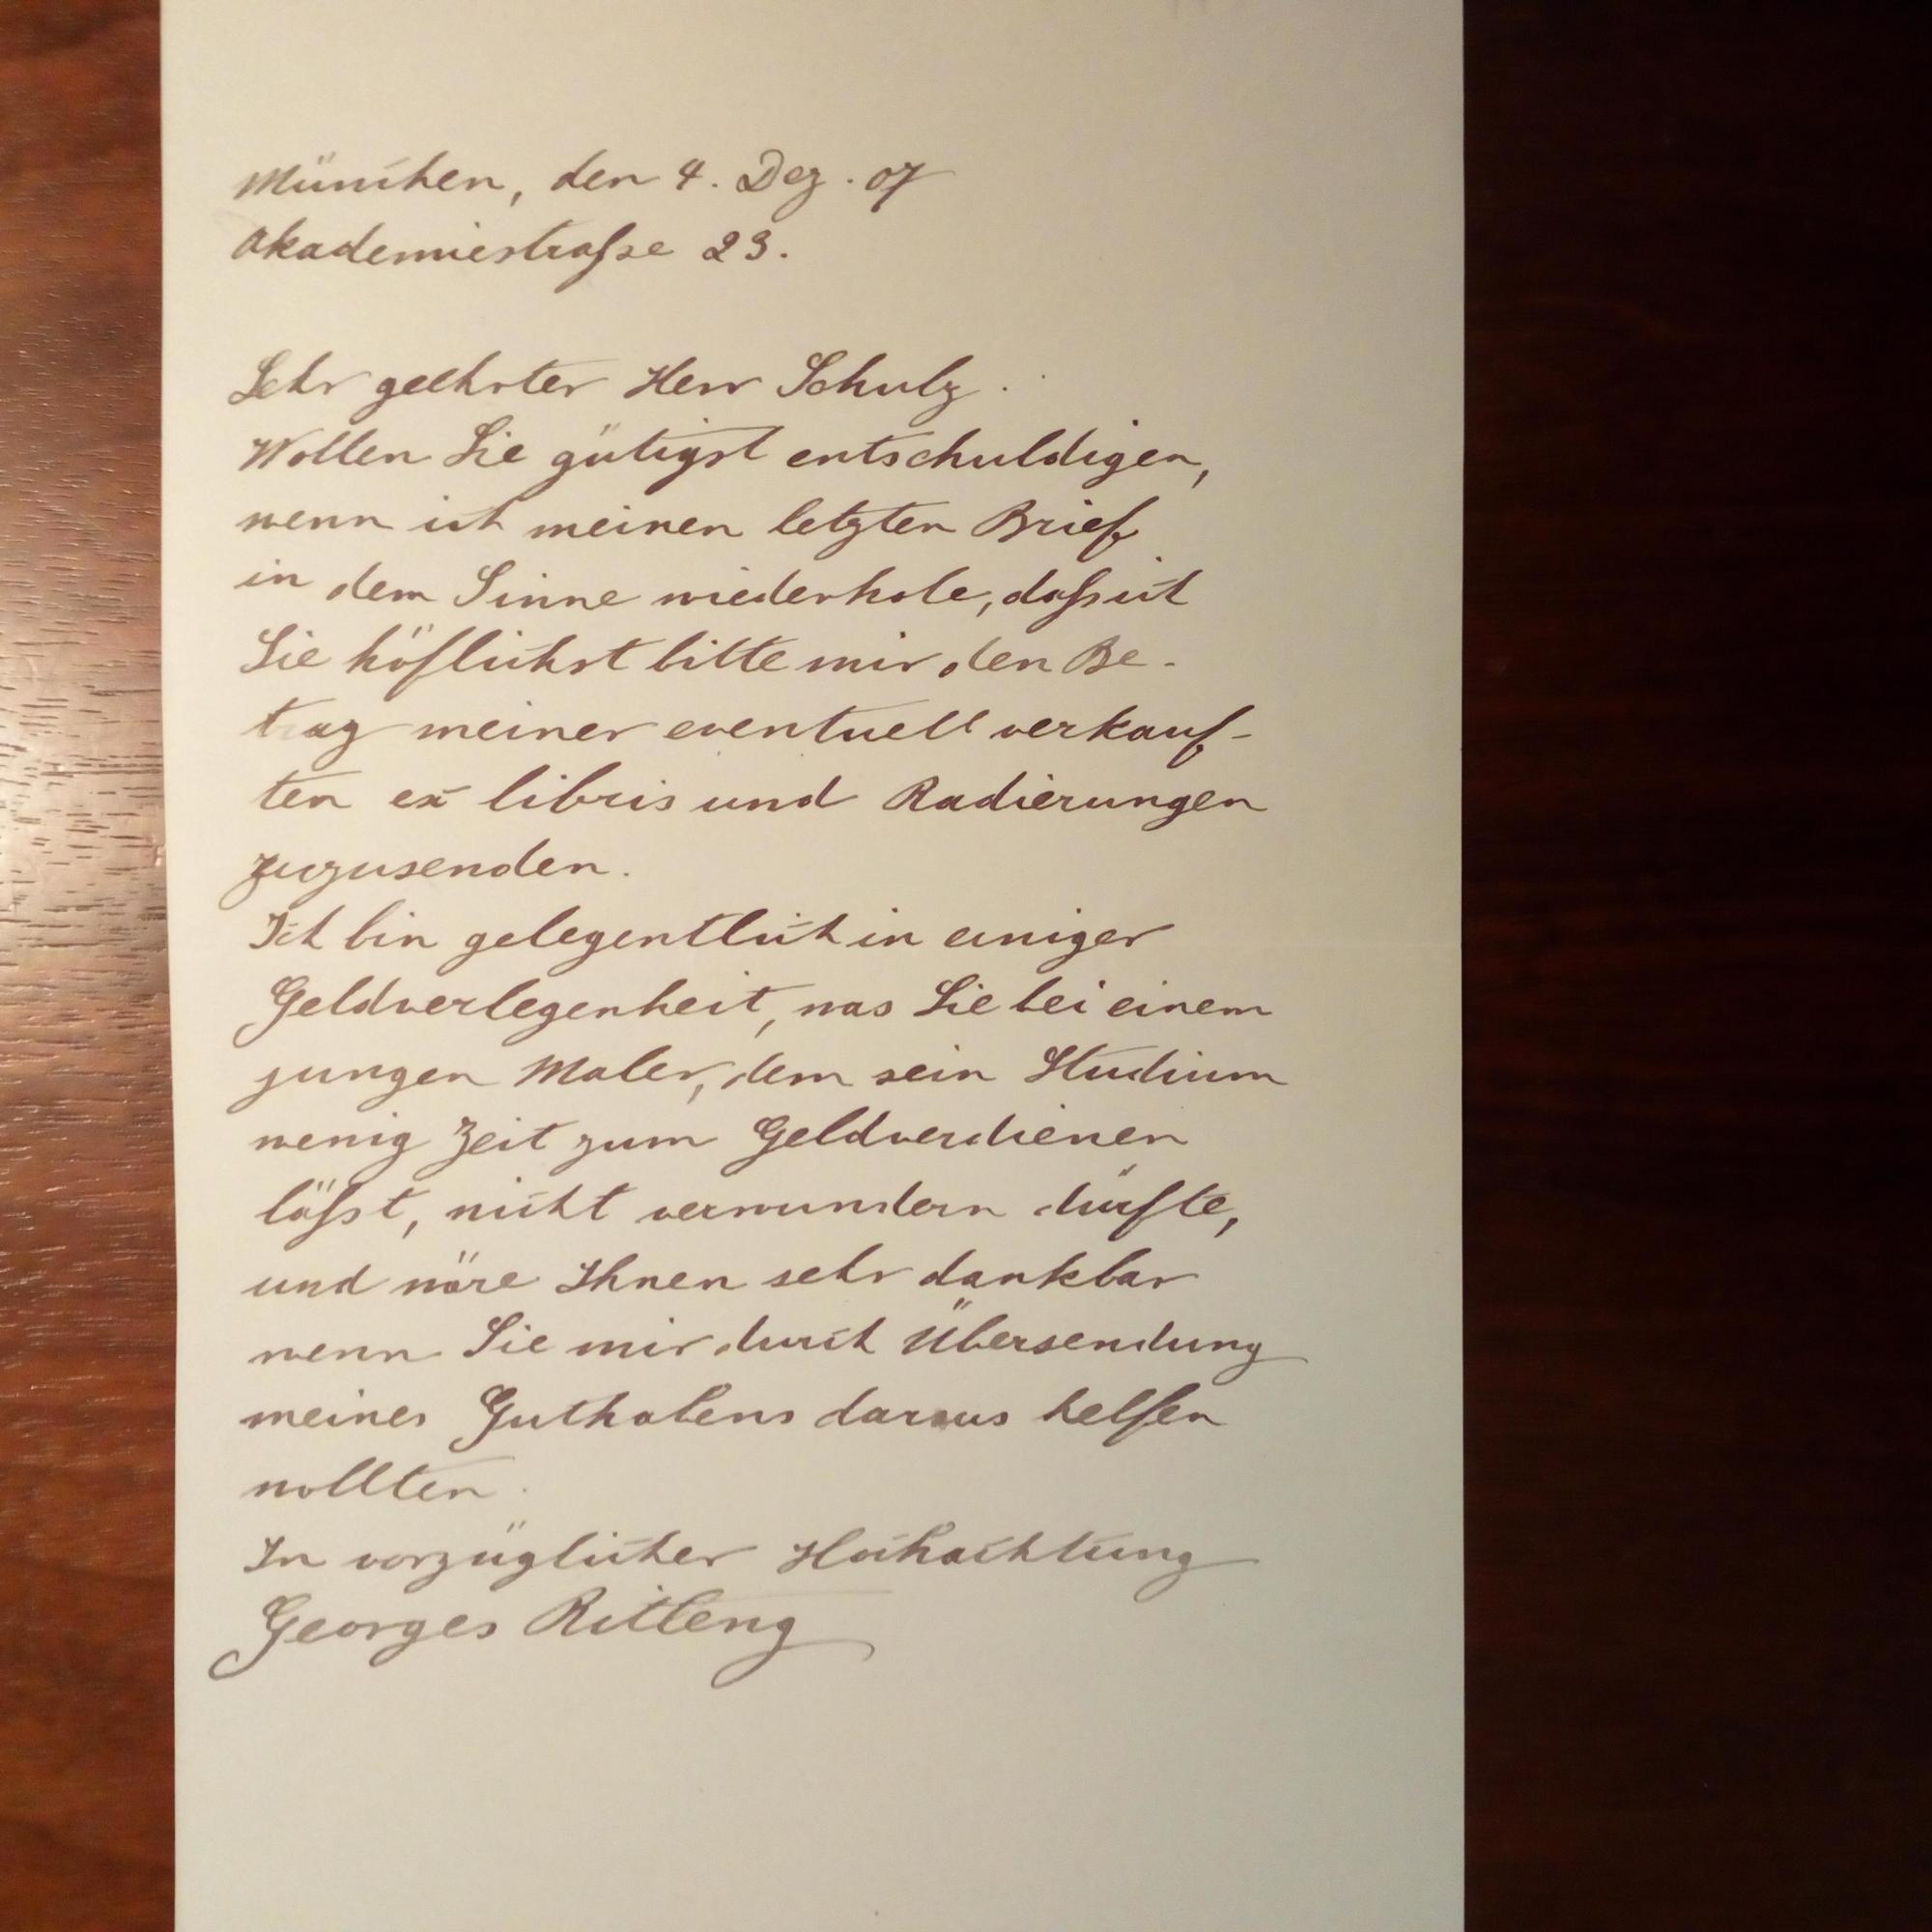 München, den 4. Dez. 07
Akademiestraße 23.
Sehr geehrter Herr Schulz.
Wollen Sie gütigst entschuldigen,
wenn ich meinen letzten Brief
in dem Sinne wiederhole, daß ich
Sie höflichst bitte mir den Be-
trag meiner eventuell verkauf-
ten ex libris und Radierungen
zuzusenden.
Ich bin gelegentlich in einiger
Geldverlegenheit, was Sie bei einem
jungen Maler, dem sein Studium
wenig Zeit zum Geldverdienen
läßt, nicht verwundern dürfte,
und wäre Ihnen sehr dankbar
wenn Sie mir durch Übersendung
meines Guthabens daraus helfen
wollten.
In vorzüglicher Hochachtung
Georges Ritleng